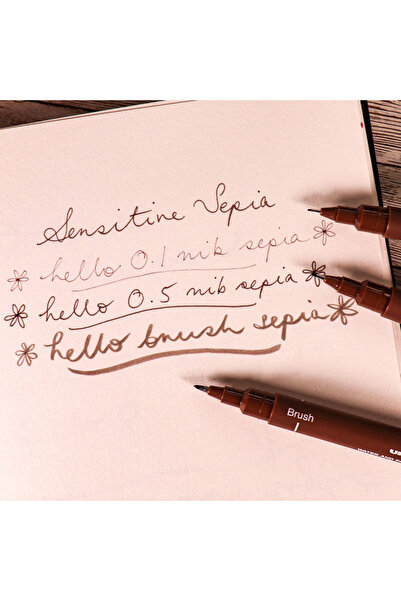 Sensitine Sepia
hello 0.1 nib sepia
hello 0.5 nib sepia
hello brush sepia
Brush